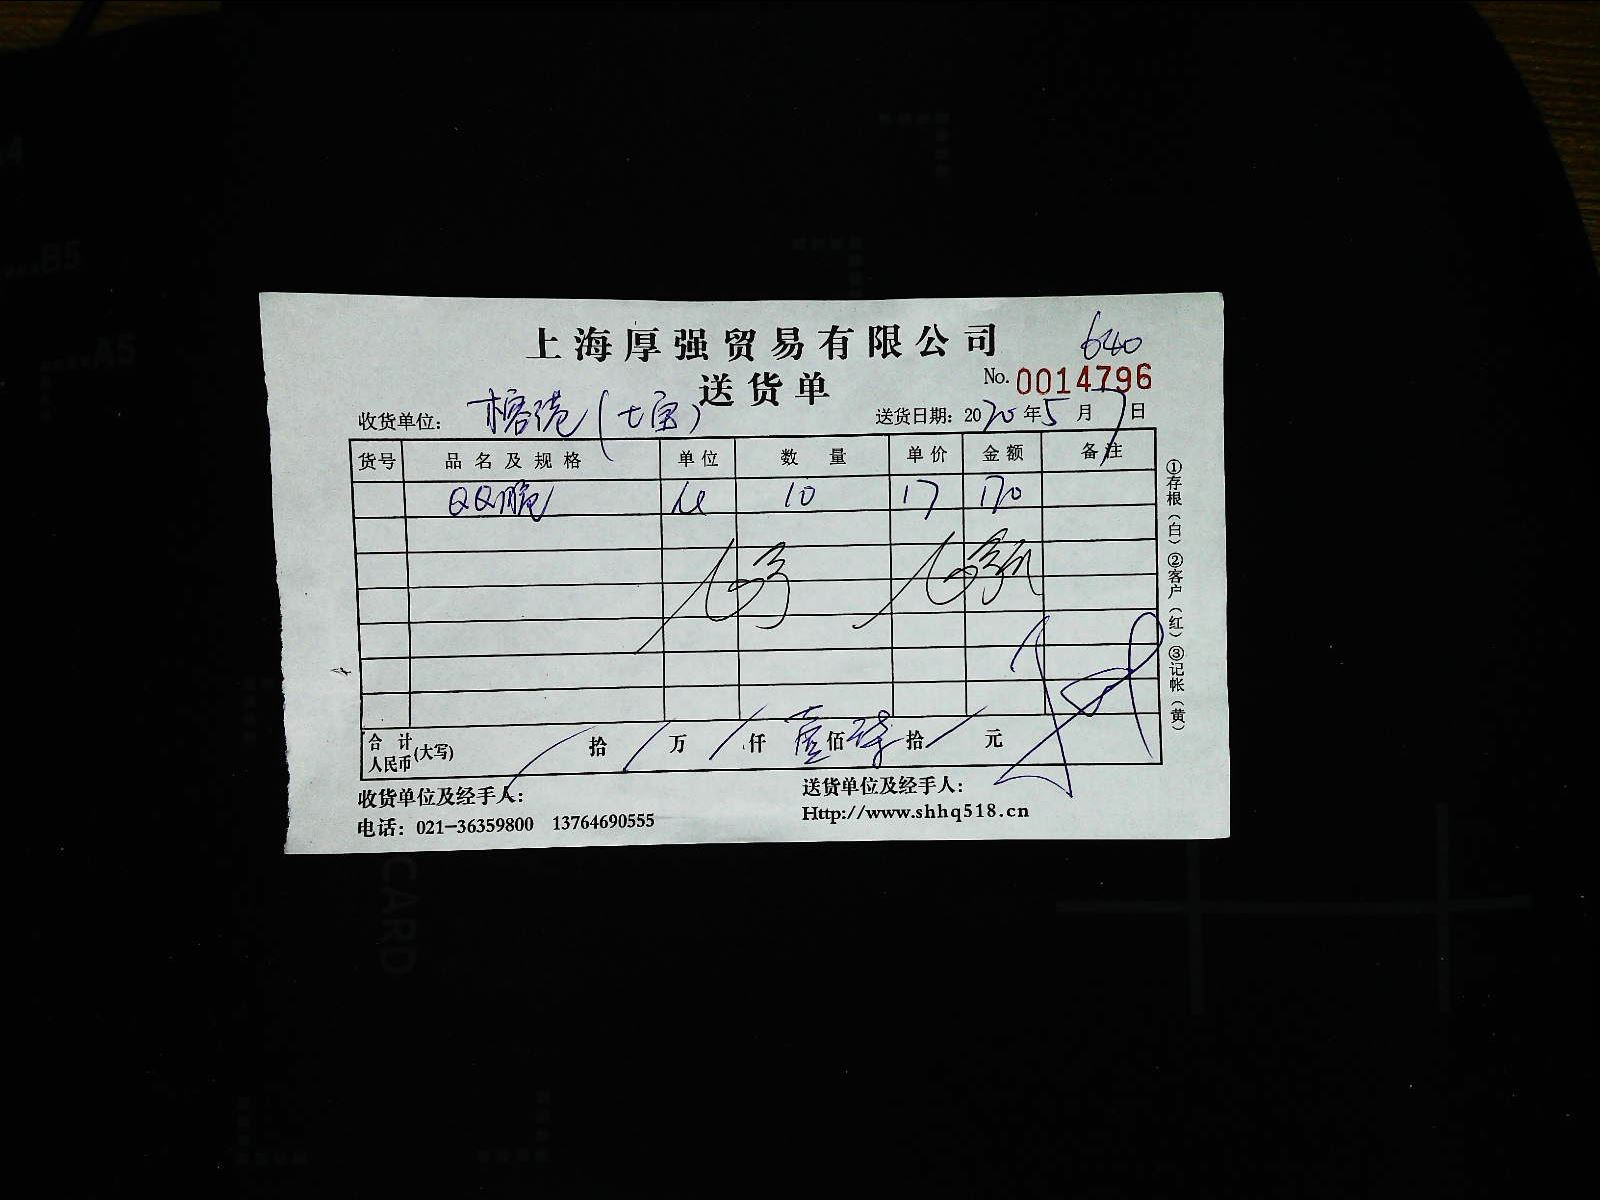 上海厚强贸易有限公司
640
送货单
No. 0014796
收货单位: 榕港(七宝)
送货日期: 2020年5月7日
货号 品名及规格 单位 数量 单价 金额 备注
QQ脆 10 17 170
合计人民币(大写) / 拾 / 万 / 仟 壹 佰 柒 拾 / 元
收货单位及经手人:
送货单位及经手人:
电话: 021-36359800 13764690555
Http://www.shhq518.cn
①存根(白)②客户(红)③记帐(黄)
A4
B5
A5
CARD